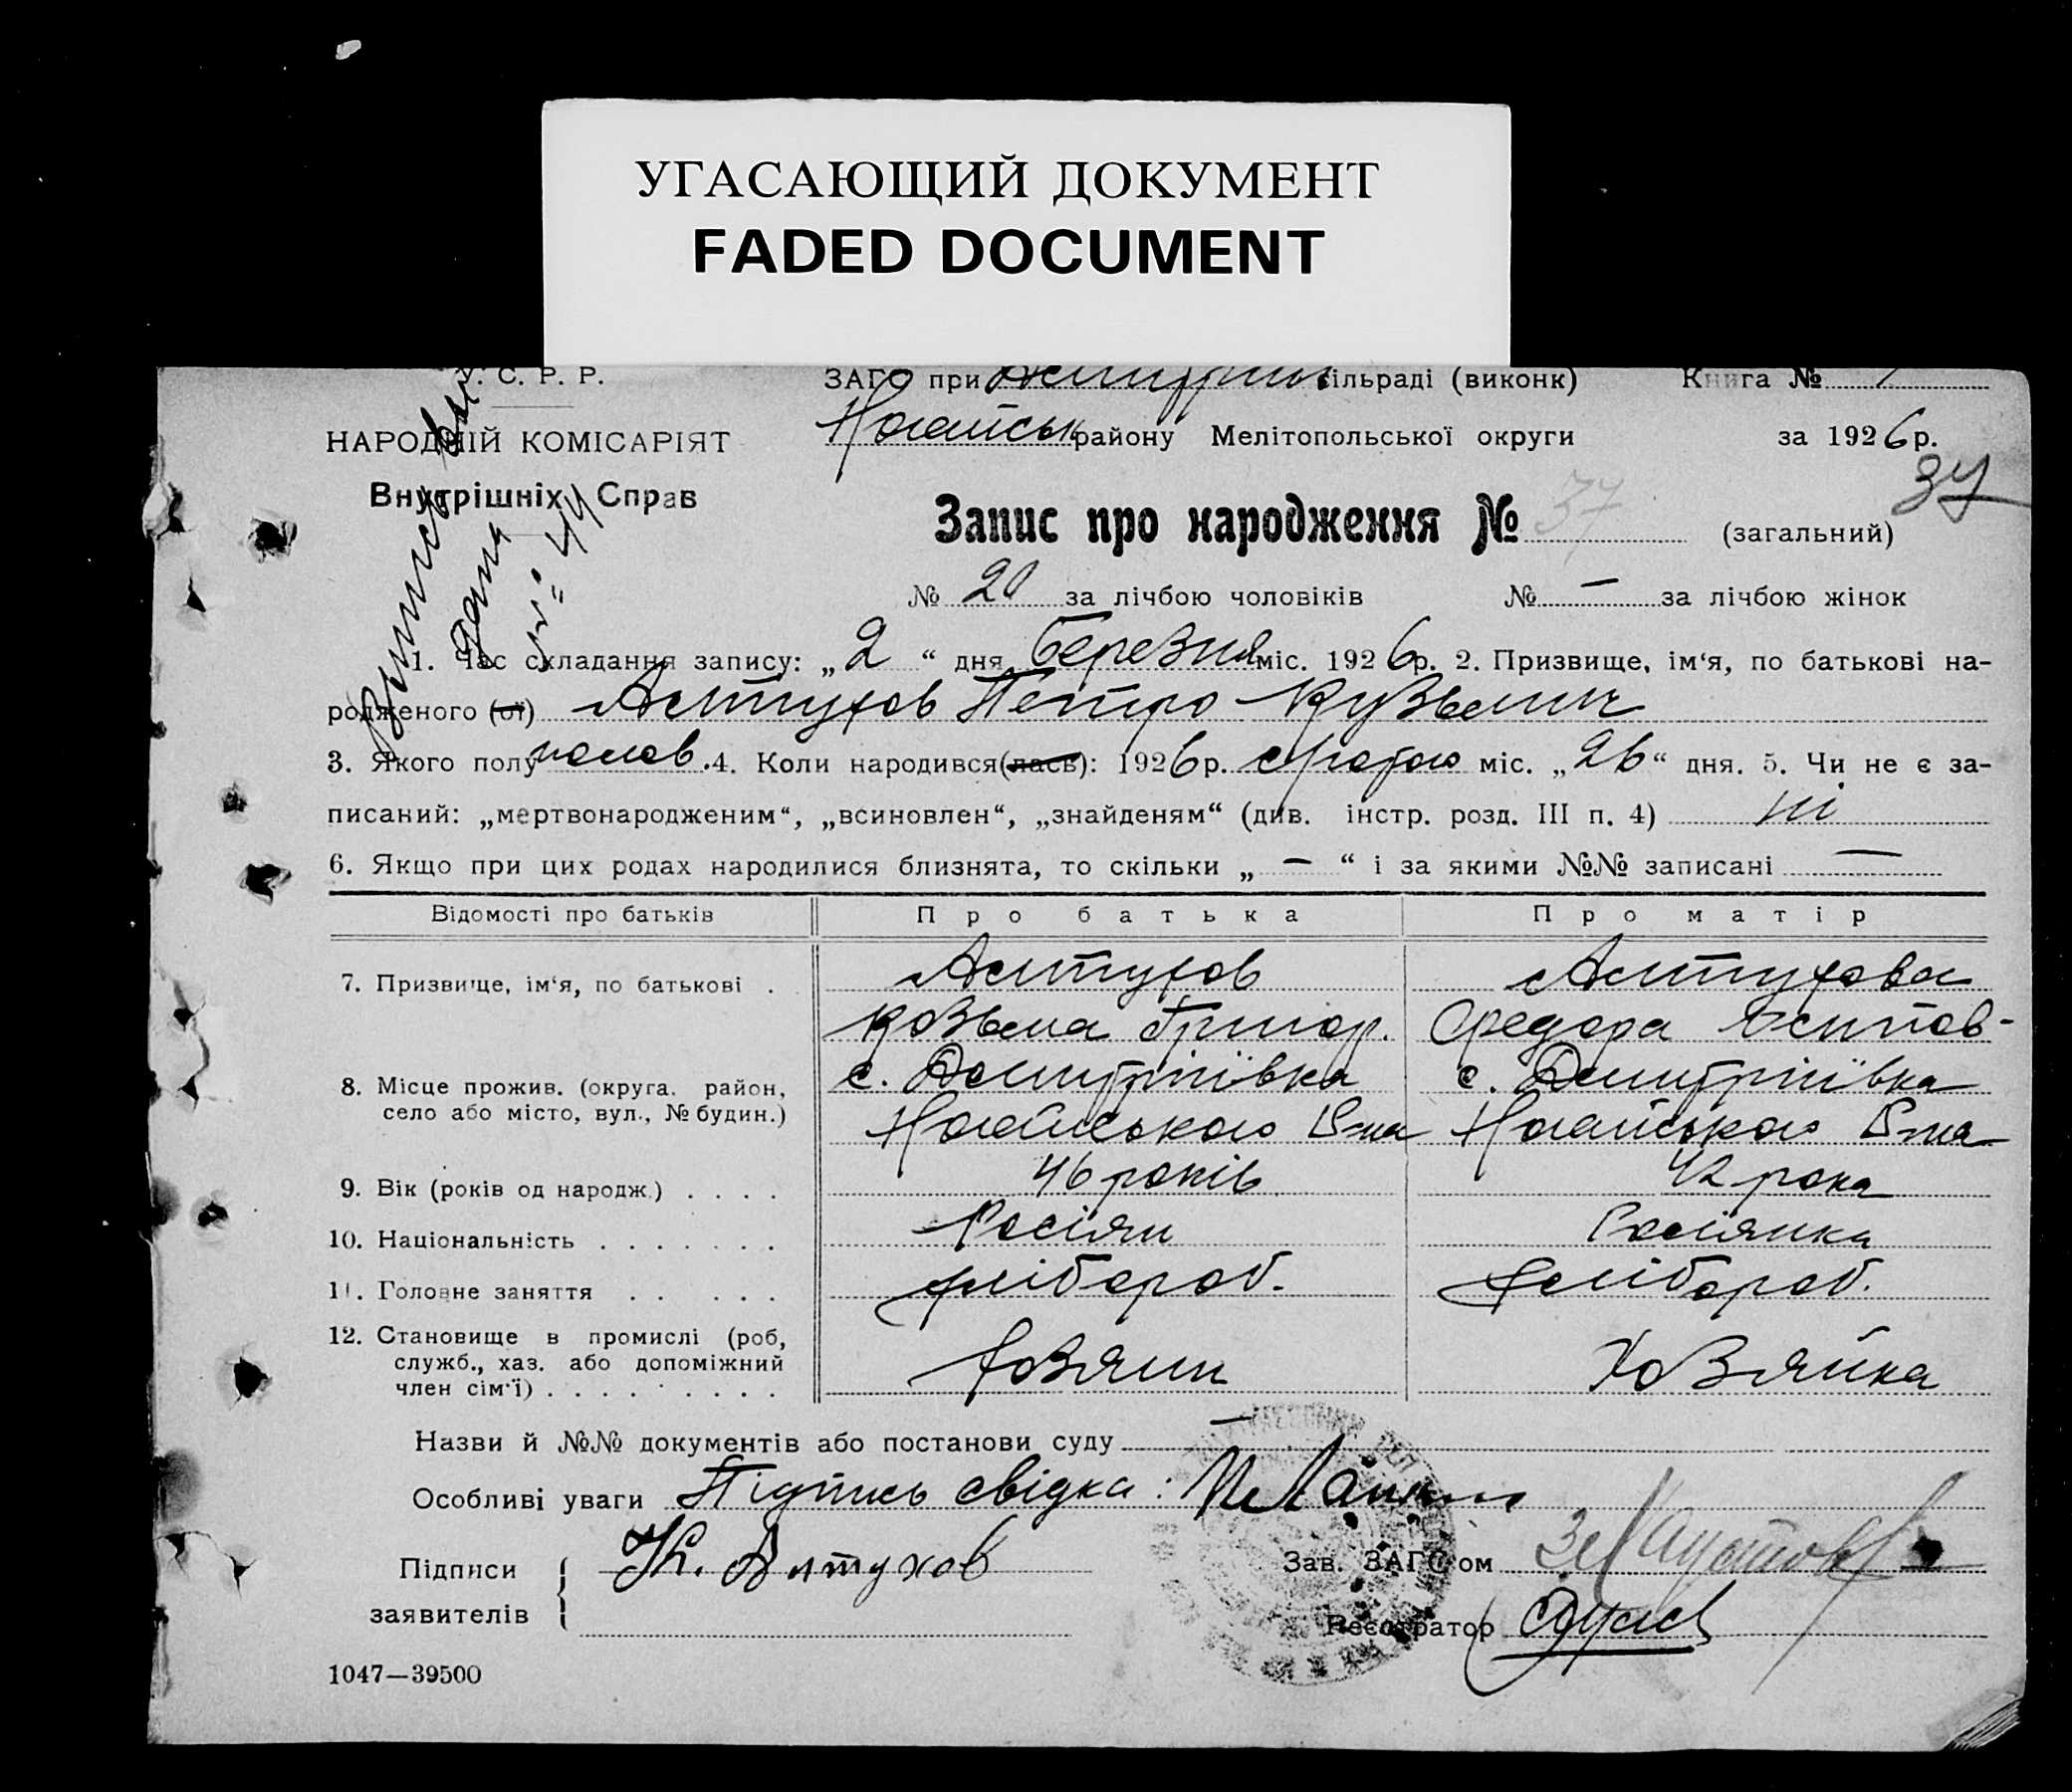 УГАСАЮЩИЙ ДОКУМЕНТ
FADED DOCUMENT
У. С. Р. Р.
НАРОДНІЙ КОМІСАРІЯТ
Внутрішніх Справ
Выпись
дана
44
ЗАГС при Дмитрівськ сільраді (виконк) Книга №
Ногайськ району Мелітопольської округи за 1926 р.
37
Запис про народження № 37 (загальний)
№ 20 за лічбою чоловіків № — за лічбою жінок
1. Час складання запису: „2“ дня березня міс. 1926 р. 2. Призвище, ім‘я, по батькові на-
родженого (ої) Алтухов Петро Кузьмич
3. Якого полу чолов. 4. Коли народився(лась): 1926 р. лютого міс. „26“ дня. 5. Чи не є за-
писаний: „мертвонародженим“, „всиновлен“, „знайденям“ (див. інстр. розд. III п. 4) ні
6. Якщо при цих родах народилися близнята, то скільки „ — “ і за якими №№ записані —
Відомості про батьків Про батька Про матір
7. Призвище, ім‘я, по батькові . Алтухов Алтухова
Козьма Григор. Федора Осипов-
8. Місце прожив. (округа. район, с. Дмитріївка с. Дмитріївка
село або місто, вул., № будин.) Ногайського Р-на Ногайського Р-на
9. Вік (років од народж.) . . . . 46 років 42 рока
10. Національність . . . . . . . Росіян Росіянка
11. Головне заняття . . . . . хлібороб. хлібороб.
12. Становище в промислі (роб,
служб., хаз. або допоміжний Хозяин Хозяйка
член сім‘ї) . . . . . . . . .
Назви й №№ документів або постанови суду —
Особливі уваги Підпись свідка:
Підписи
заявителів
К. Алтухов
Зав. ЗАГС‘ом
Реєстратор
1047—39500